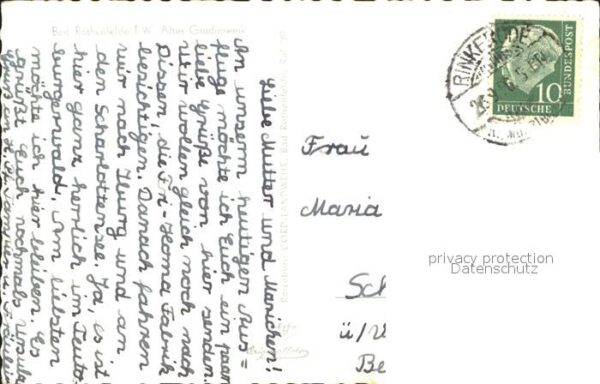 Bad Rothenfelde T.W. Altes Gradierwerk
Liebe Mutter und Mariechen!
An unserm heutigen Aus=
fluge möchte ich Euch ein paar
liebe Grüße von hier senden.
Wir wollen gleich noch nach
Dissen, die Fri-Homa Fabrik
besichtigen. Danach fahren
wir nach Iburg und an
den Scharlottensee. Ja, es ist
hier ganz herrlich im Teuto-
burgerwald. Am liebsten
möchte ich hier bleiben. Es
grüßt Euch nochmals Ursula
Frau
Maria
Sch
ü/W
Be
RINKERODE
10
DEUTSCHE
BUNDESPOST
privacy protection
Datenschutz